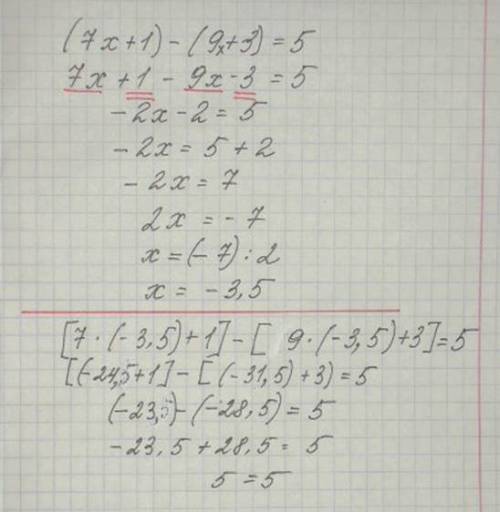 (7x+1)-(9x+3)=5
7x+1-9x-3=5
-2x-2=5
-2x=5+2
-2x=7
2x=-7
x=(-7):2
x=-3,5
[7·(-3,5)+1]-[9·(-3,5)+3]=5
[(-24,5+1]-[(-31,5)+3)=5
(-23,5)-(-28,5)=5
-23,5+28,5=5
5=5